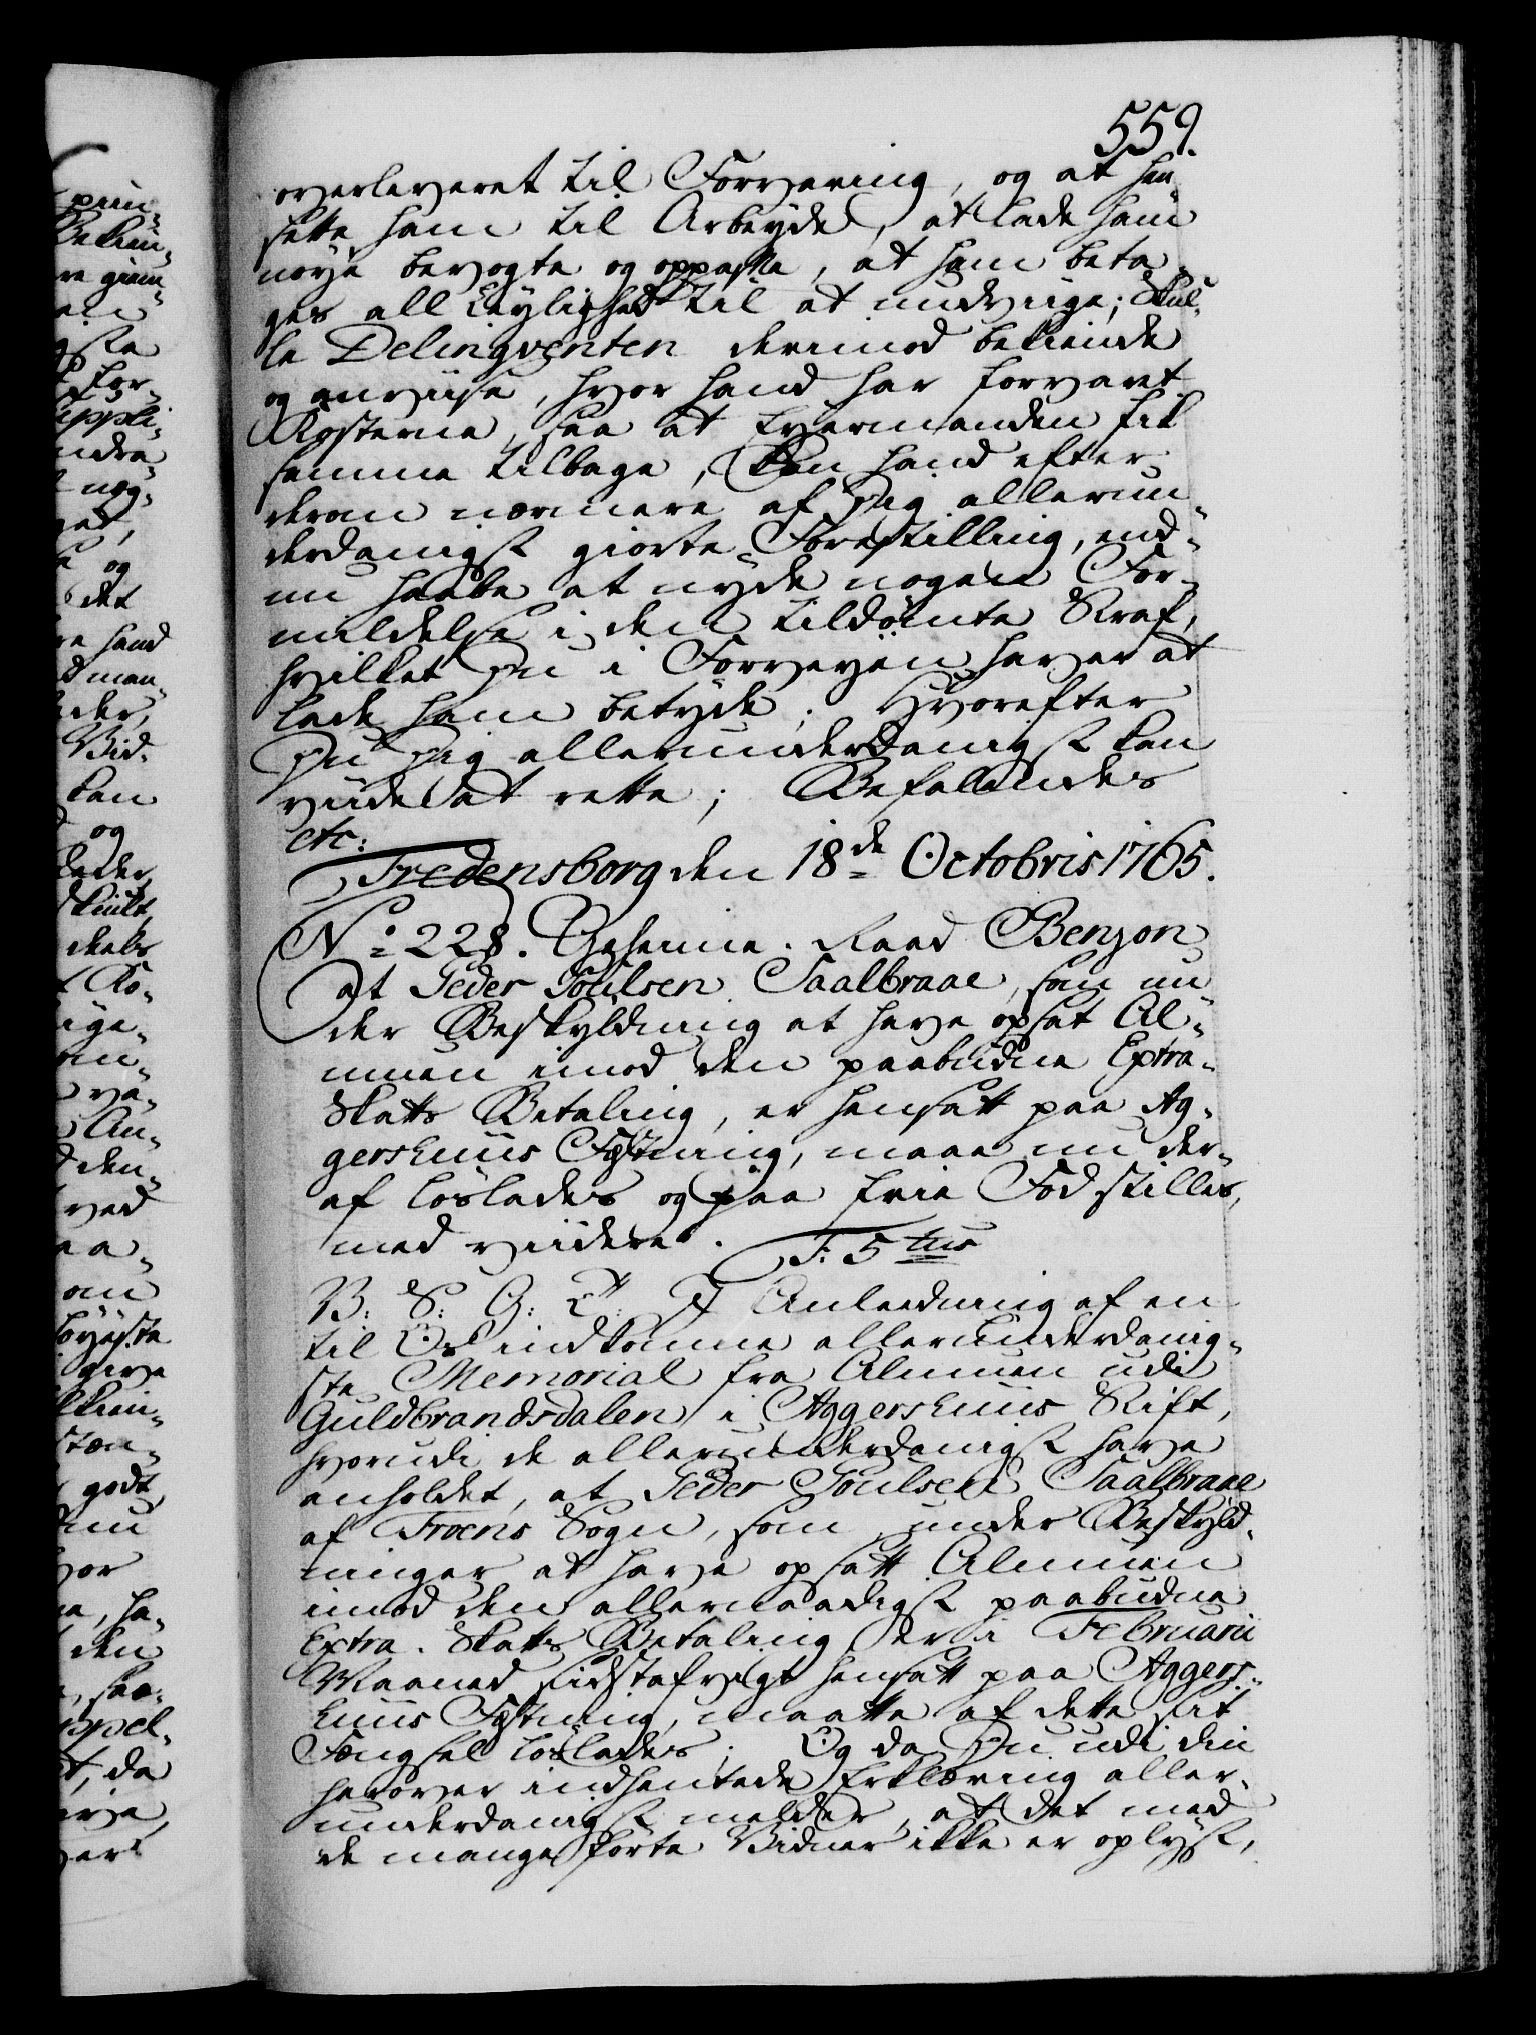 559.
overleveret til Forvaring, og at hen„
sette ham til Arbeyde, at lade ham
nøye bevogte og oppaske, at ham beta„
ges all Leylighed til at undviige; Skul„
le Delinqventen derimod bekiende
og anviise, hvor hand har forvaret
Kosterne, saa at Eyermanden fik
samme tilbage, kan hand efter
derom nærmere af Dig allerun„
derdanigst giorte Forestilling, end„
nu haabe at nyde nogen For„
mildelse i den tildømte Straf,
hvilket Du i Forveyen haver at
lade ham betyde; Hvorefter
Du Dig allerunderdanigst kan
viide at rette; Befalendes
etc:
Fredensborg den 18de Octobris 1765.
No 228. Geheime-Raad Benzon
at Peder Poulsen Saalbraae, som un„
der Beskyldning at have opsat Al„
muen imod den paabudne Extra„
Skatts Betaling, er hensatt paa Ag„
gershuus Fæstning, maae nu der„
af løslades og paa frie Fod stilles,
med viidere. F: 5tus
V: S: G: T: I Anleedning af en
til Os indkomne allerunderdanig„
ste Memorial fra Almuen udi
Guldbrandsdalen i Aggershuus Stift,
hvorudi de allerunderdanigst have
anholdet, at Peder Poulsen Saalbraae
af Froens Sogn, som, under Beskyld„
ninger at have opsatt Almuen
imod den allernaadigst paabudne
Extra-Skatts Betaling er i Februarii
Maaned sidstafvigt hensatt paa Aggers„
huus Fæstning, maatte af dette sit
Fængsel løslades; Og da Du udi din
herover indhentede Erklæring aller„
underdanigst melder, at det med
de mange førte Vidner ikke er oplyst,